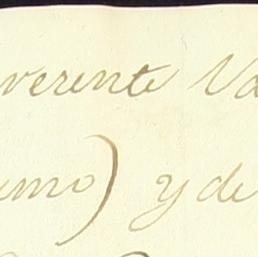 verente Va
emo) y de